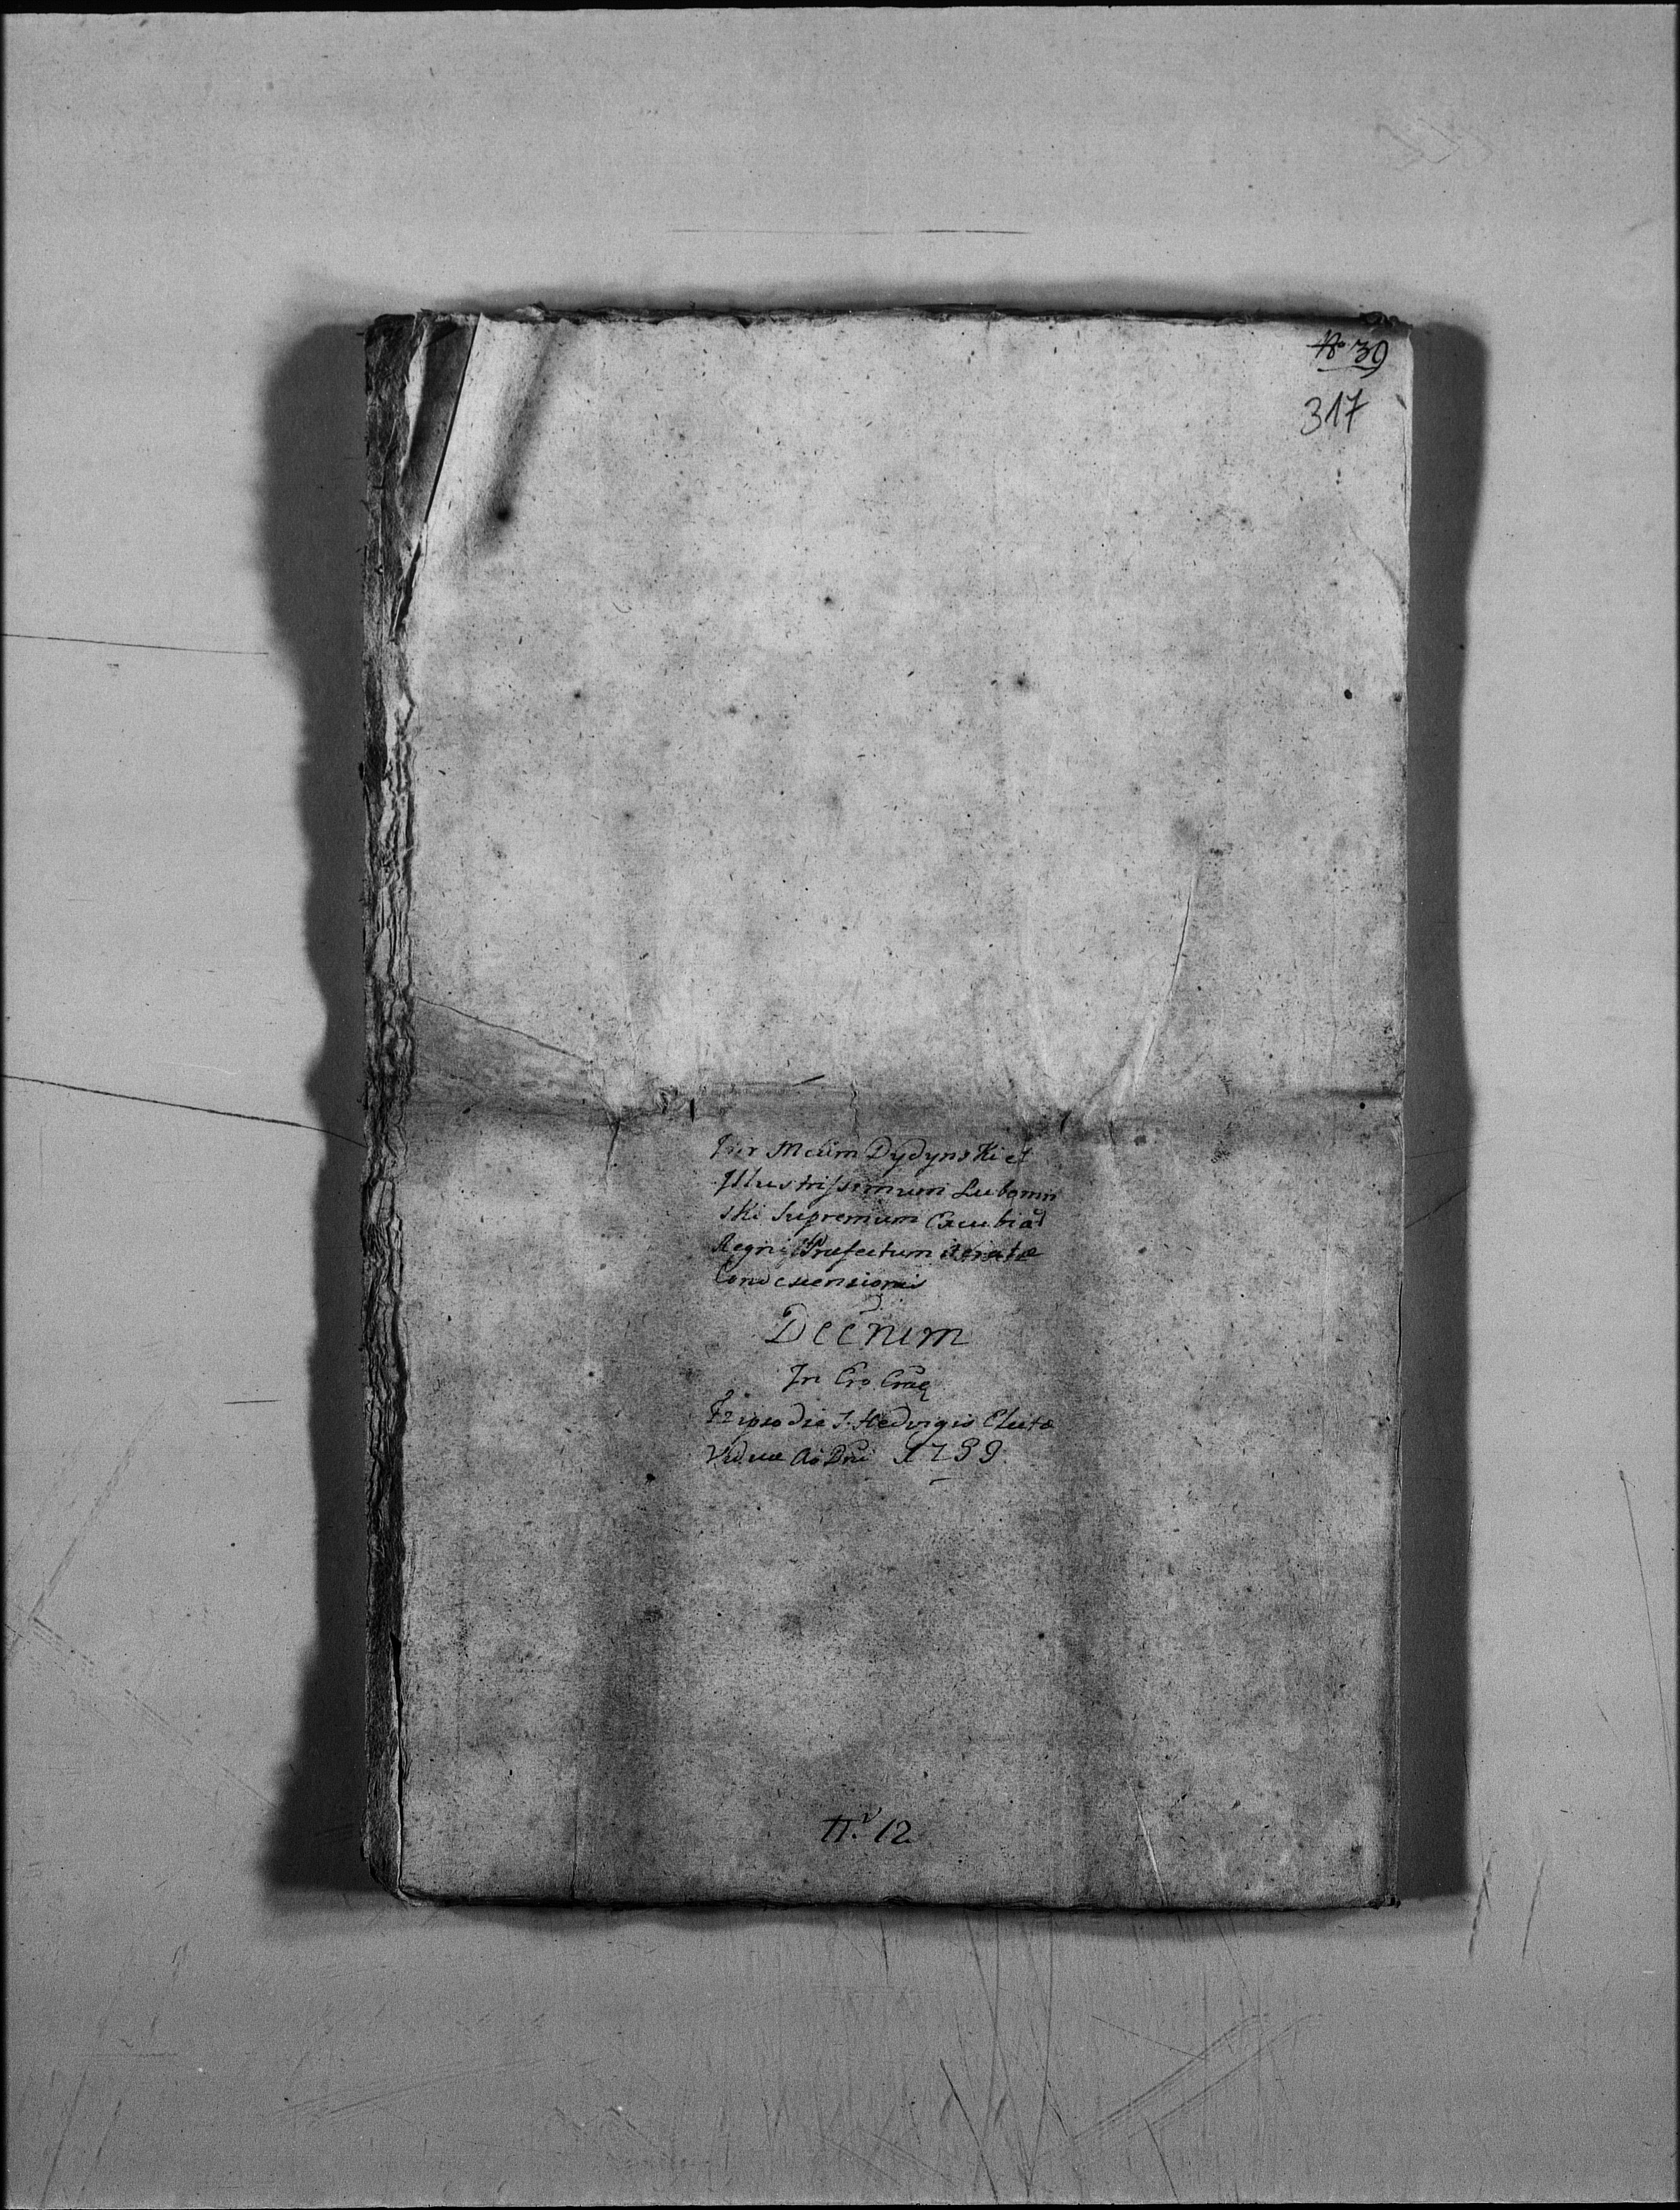 No 39
317
Inr Mcum Dydynski et
Illustrissimum Lubomir
ski Supremum Excubiar
Regni Praefectum iteratae
Condescensionis
Decrum
In Cro
Fr ipso die S. Hedvigis Electae
Viduae Ao Dni 1739.
N. 12